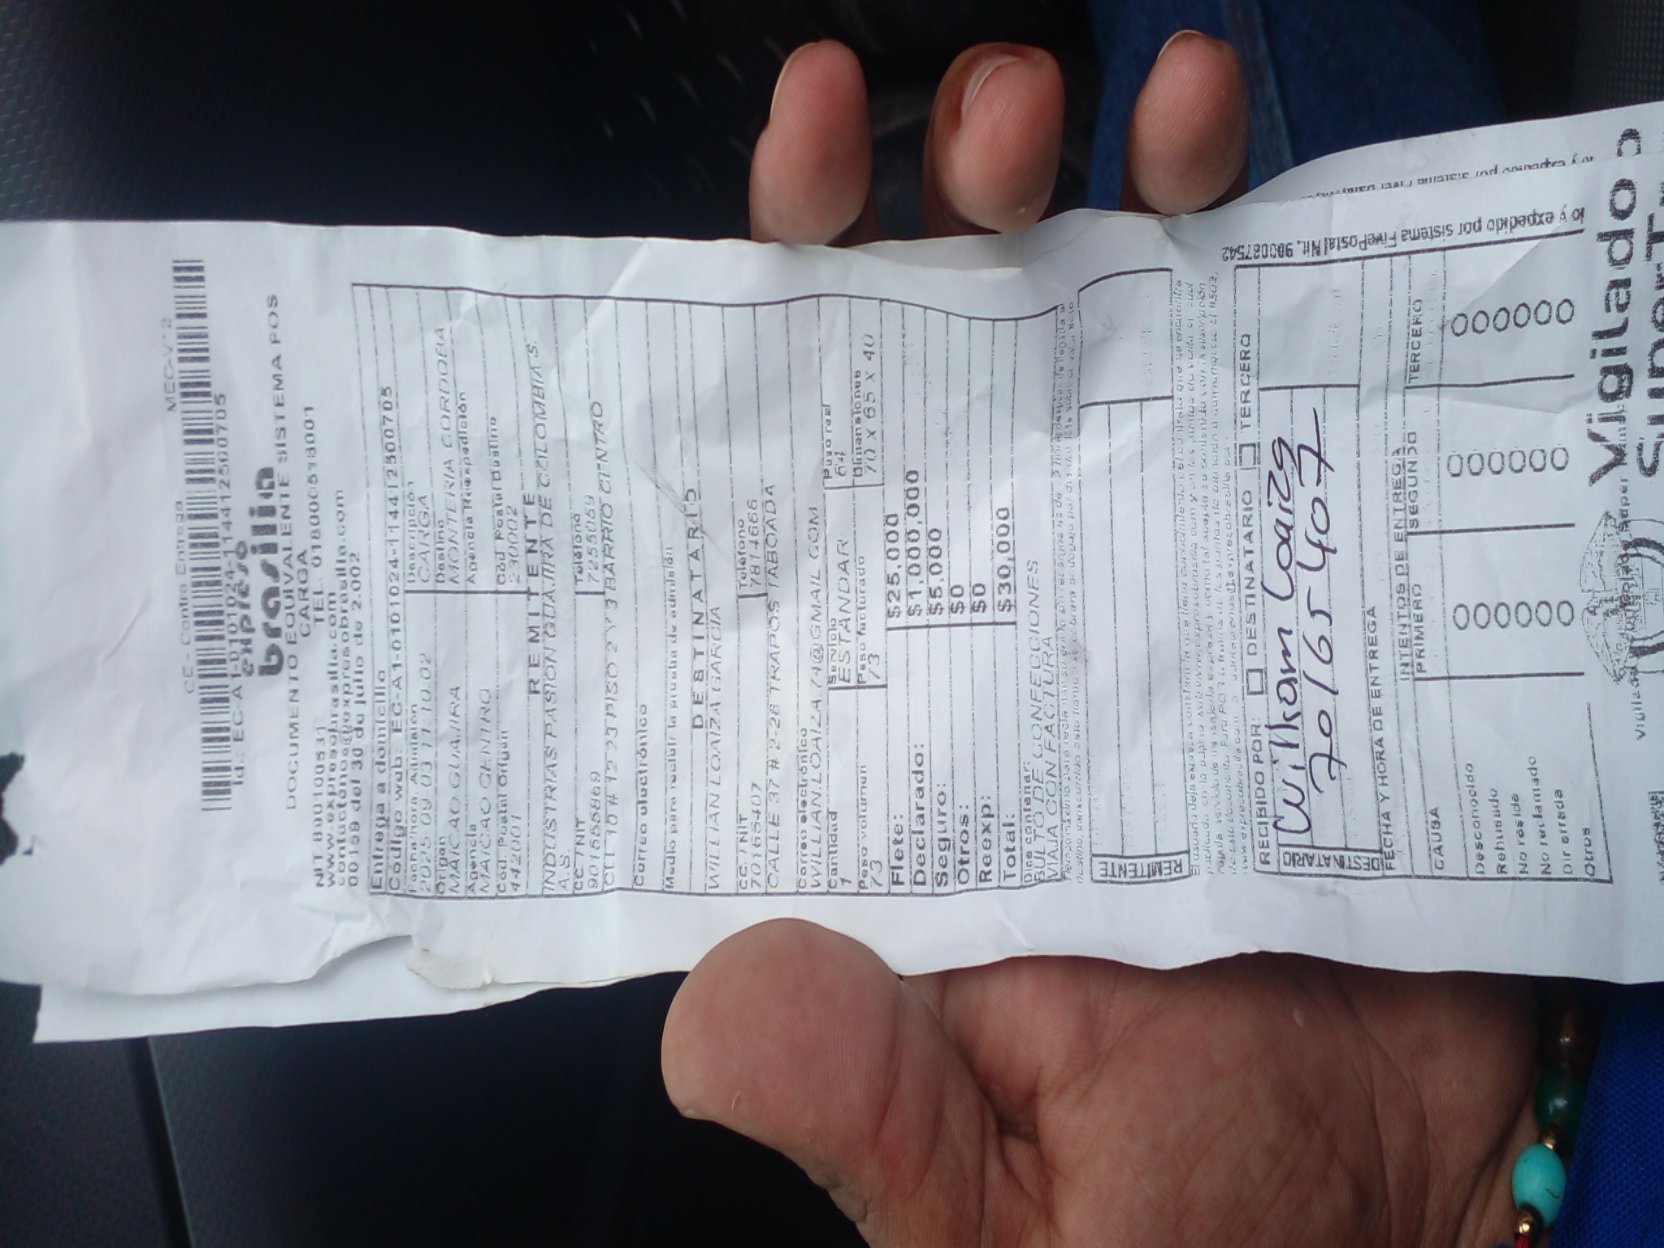 CE - Centro Entrega
MEC-V 2
Id.: EC-A1-0101024-114412500705
expreso
brasilia
DOCUMENTO EQUIVALENTE SISTEMA POS
CARGA
TEL. 018000518001
NIT 890100531
www.expresobrasilia.com
contactenos@expresobrasilia.com
00159 del 30 de julio de 2.002
Entrega a domicilio
Código web: EC-A1-0101024-114412500705
Fecha/hora Admisión Descripción
2025-09-03 11:10:02 CARGA
Origen Destino
MAICAO GUAJIRA MONTERIA CORDOBA
Agencia Agencia Reexpedición
MAICAO CENTRO
Cód. Postal Origen Cód Postal Destino
442001 230002
REMITENTE
INDUSTRIAS PASION GUAJIRA DE COLOMBIA S.
A.S.
CC / NIT Teléfono
901655869 7255059
CLL 10 # 12 25 PISO 2 Y 3 BARRIO CENTRO
Correo electrónico
Medio para recibir la prueba de admisión
DESTINATARIO
WILLIAN LOAIZA GARCIA
CC / NIT Teléfono
70165407 7814666
CALLE 37 # 2-26 TRAPOS TABOADA
Correo electronico
WILLIAN.LOAIZA.74@GMAIL.COM
Cantidad Servicio Peso real
1 ESTANDAR 64
Peso volumen Peso facturado Dimensiones
73 73 70 x 65 x 40
Flete: $25,000
Declarado: $1,000,000
Seguro: $5,000
Otros: $0
Reexp: $0
Total: $30,000
Dice contener:
BULTO DE CONFECCIONES
VIAJA CON FACTURA
REMITENTE
RECIBIDO POR: DESTINATARIO TERCERO
William Loaiza
70165407
DESTINATARIO
FECHA Y HORA DE ENTREGA
INTENTOS DE ENTREGA
CAUSA PRIMERO SEGUNDO TERCERO
Desconocido
Rehusado
No reside
No reclamado
Dir errada
Otros
io y expedido por sistema FivePostal Nit. 900087542
Vigilado
SuperT